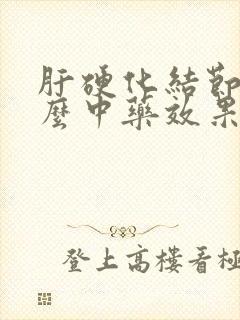 肝硬化结節
麼中藥效果
登上高樓看極